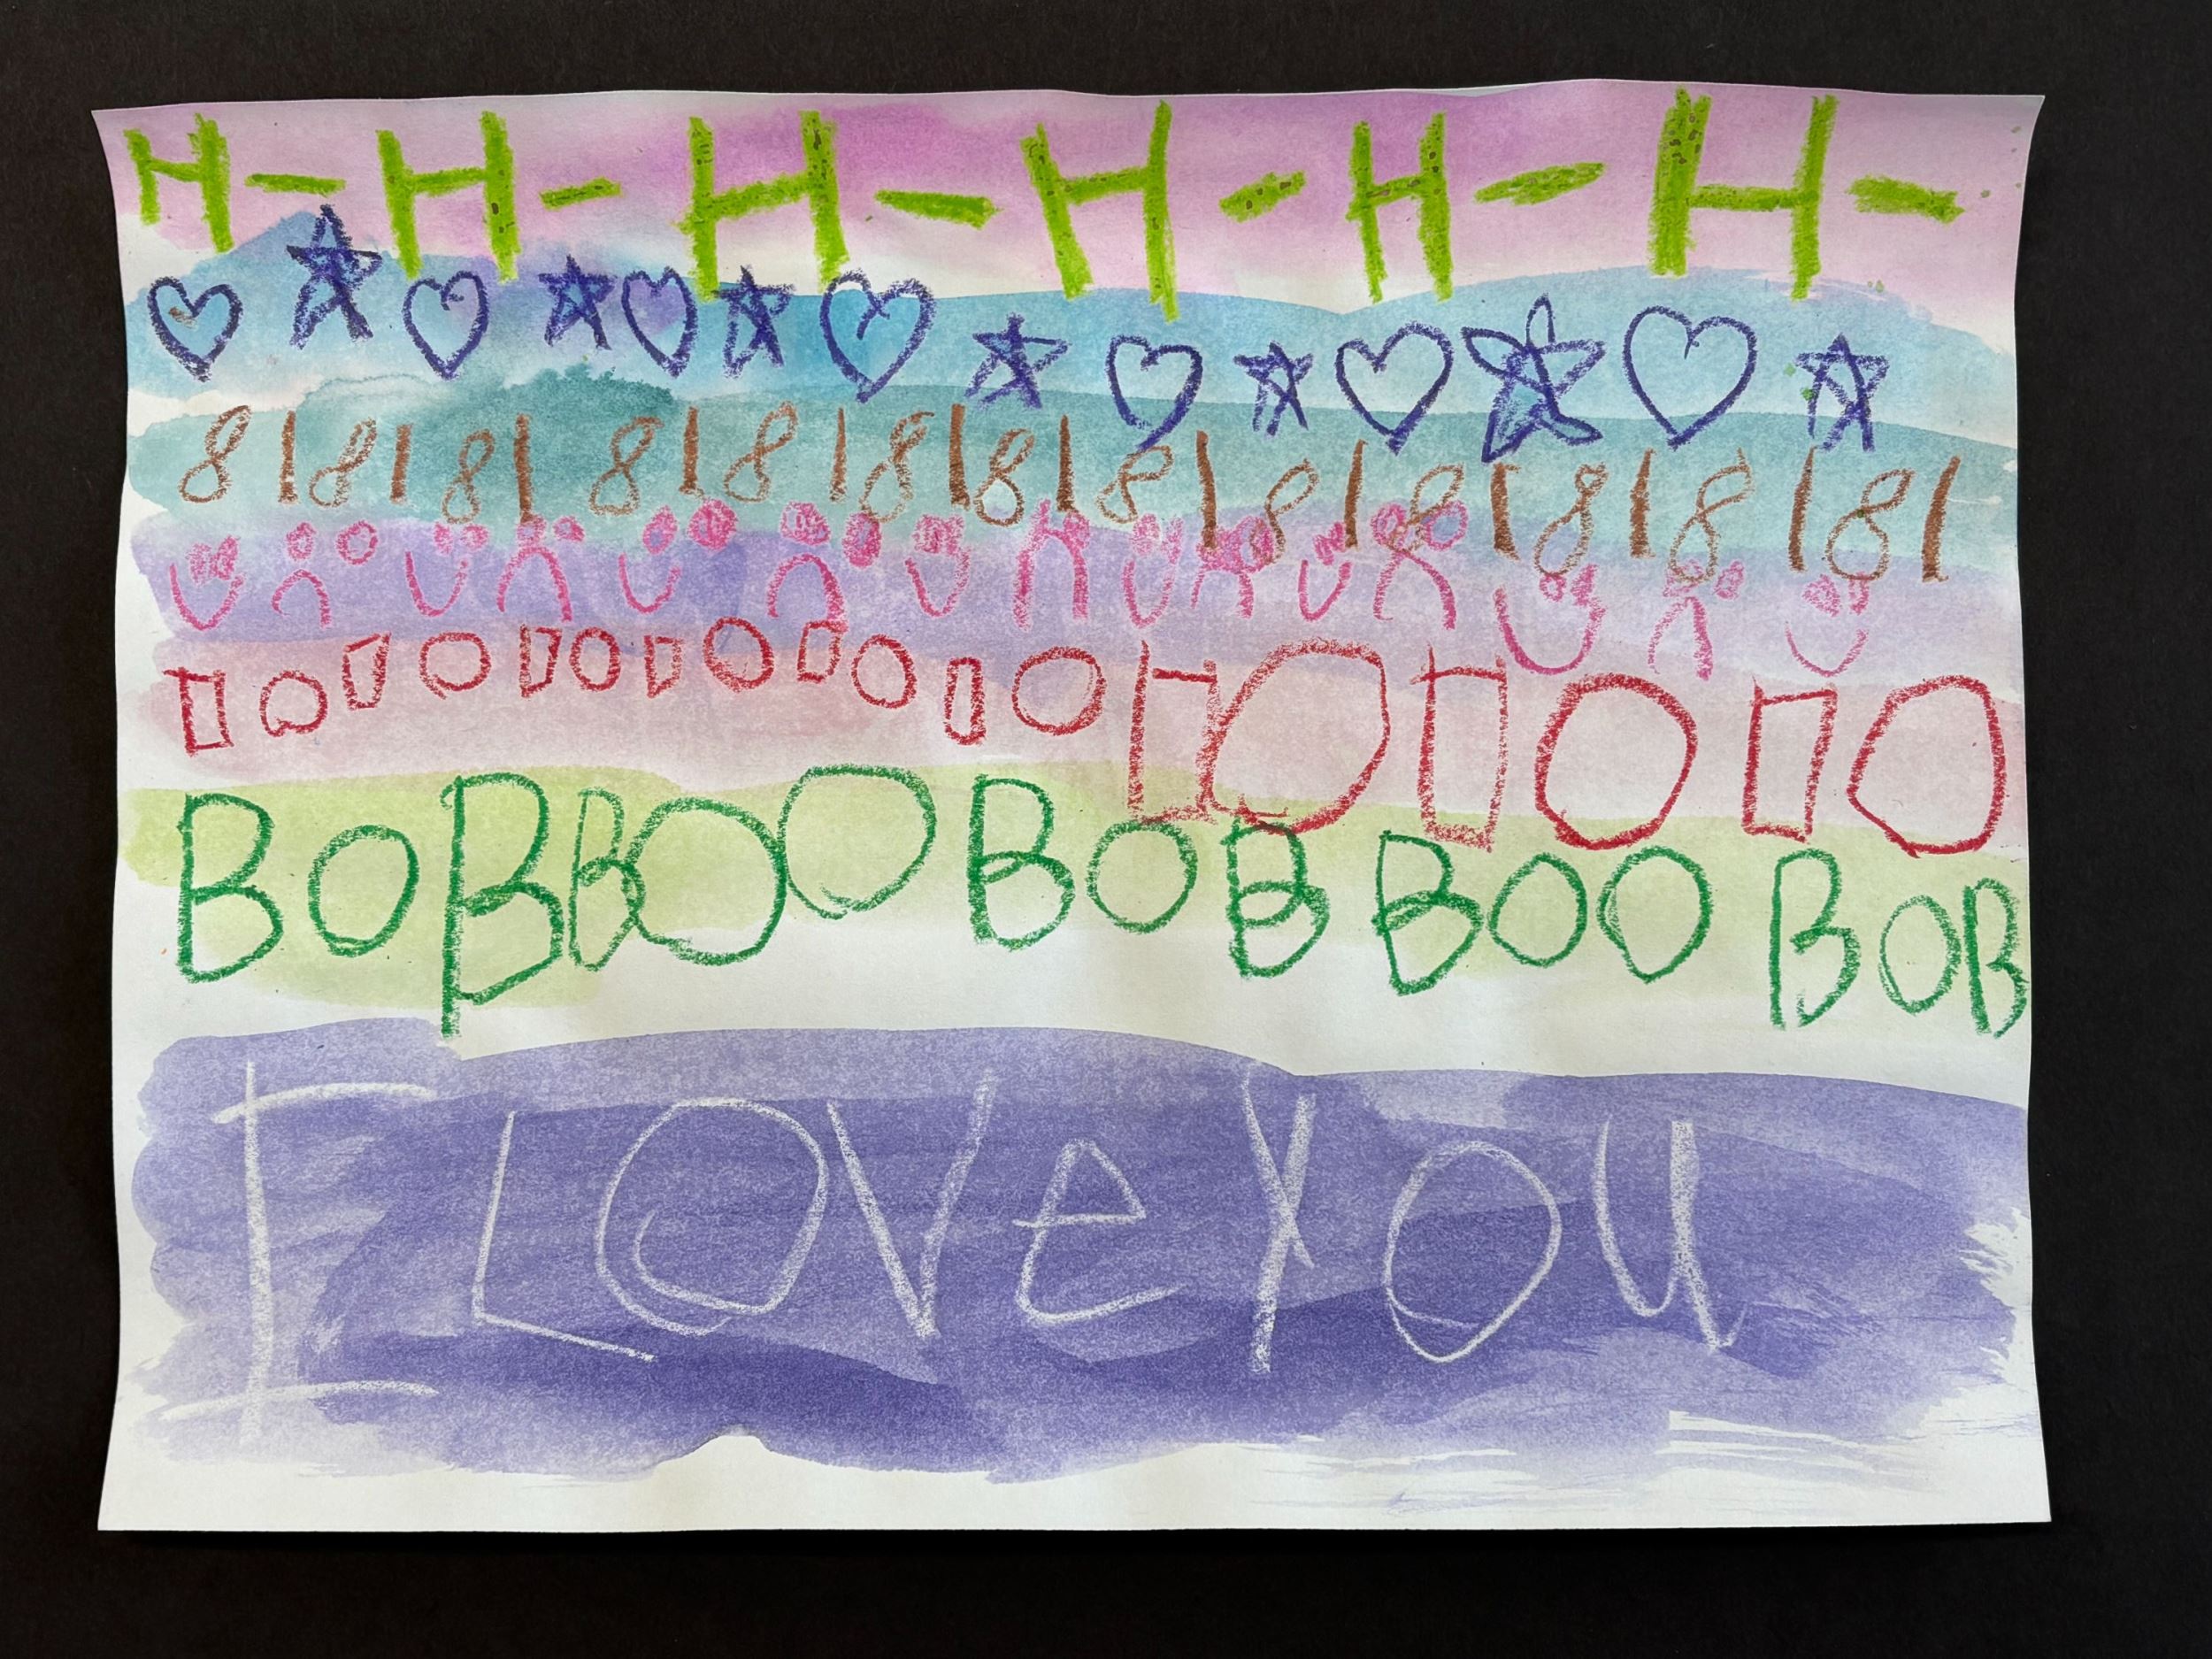 H - H - H - H - H - H -
8 1 8 1 8 1 8 1 8 1 8 1 8 1 8 1 8 1 8 1 8 1 8 1 8 1
BOB BOO BOB BOO BOB
I LOVe YOU